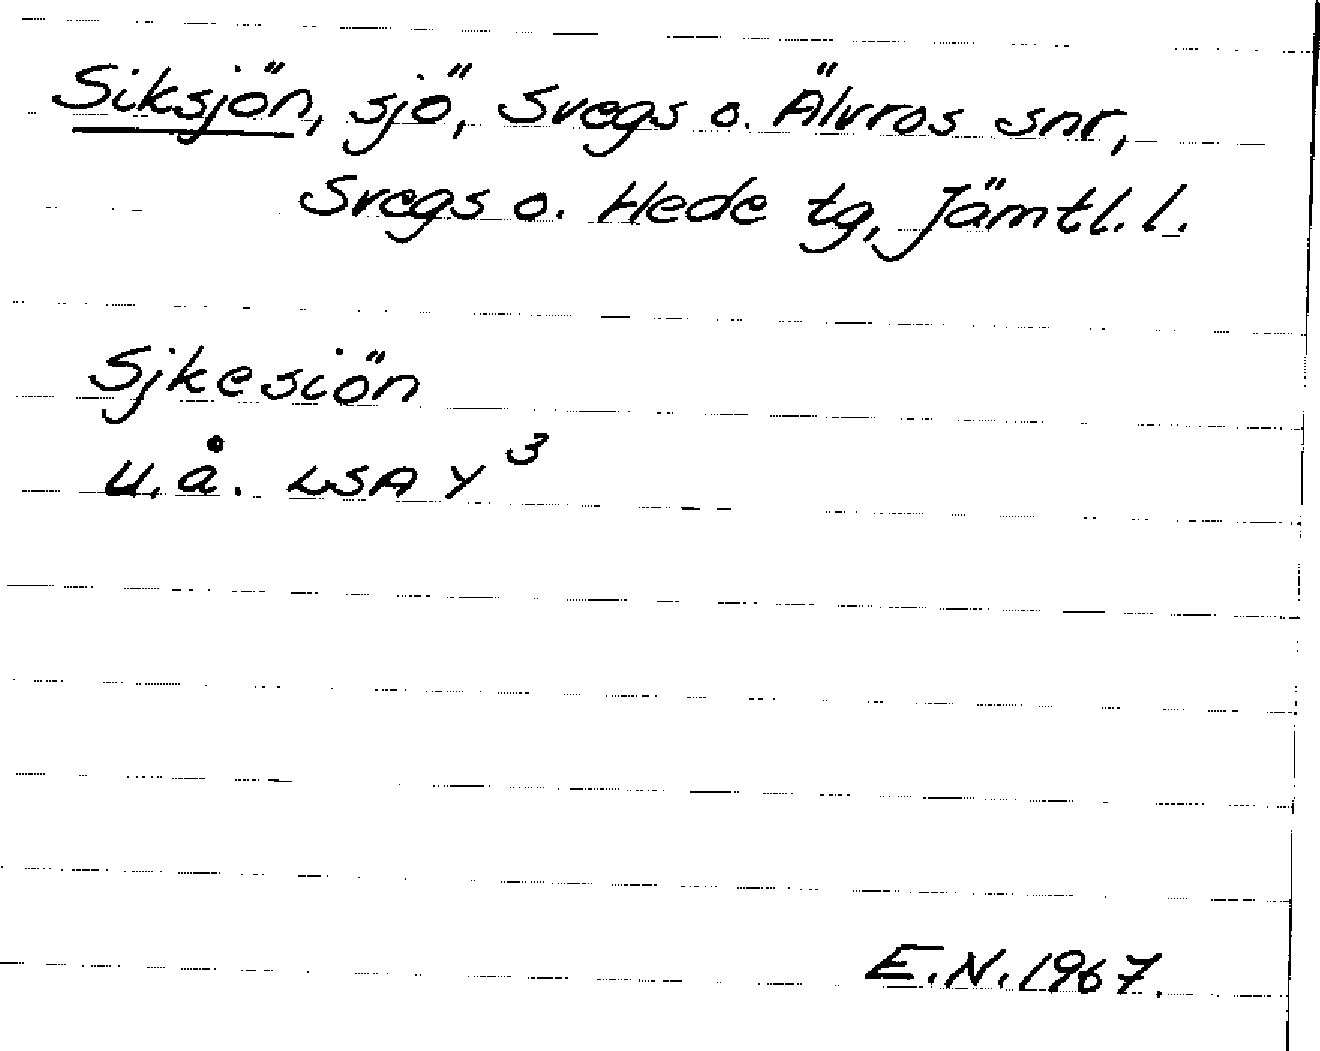 Siksjön, sjö, Svegs o. Älvros snr,
Svegs o. Hede tg, Jämtl. l.
Sjkesiön
u.å. LSA Y 3
E.N. 1967.